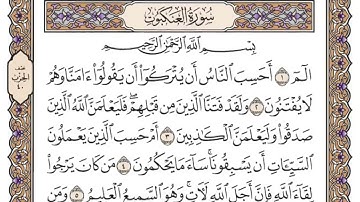 سُورَةُ العَنكَبُوتِ
بِسْمِ ٱللَّهِ ٱلرَّحْمَٰنِ ٱلرَّحِيمِ
الٓمٓ ١ أَحَسِبَ ٱلنَّاسُ أَن يُتْرَكُوٓا۟ أَن يَقُولُوٓا۟ ءَامَنَّا وَهُمْ
لَا يُفْتَنُونَ ٢ وَلَقَدْ فَتَنَّا ٱلَّذِينَ مِن قَبْلِهِمْ ۖ فَلَيَعْلَمَنَّ ٱللَّهُ ٱلَّذِينَ
صَدَقُوا۟ وَلَيَعْلَمَنَّ ٱلْكَٰذِبِينَ ٣ أَمْ حَسِبَ ٱلَّذِينَ يَعْمَلُونَ
ٱلسَّيِّـَٔاتِ أَن يَسْبِقُونَا ۚ سَآءَ مَا يَحْكُمُونَ ٤ مَن كَانَ يَرْجُوا۟
لِقَآءَ ٱللَّهِ فَإِنَّ أَجَلَ ٱللَّهِ لَـَٔاتٍ ۚ وَهُوَ ٱلسَّمِيعُ ٱلْعَلِيمُ ٥ وَمَن